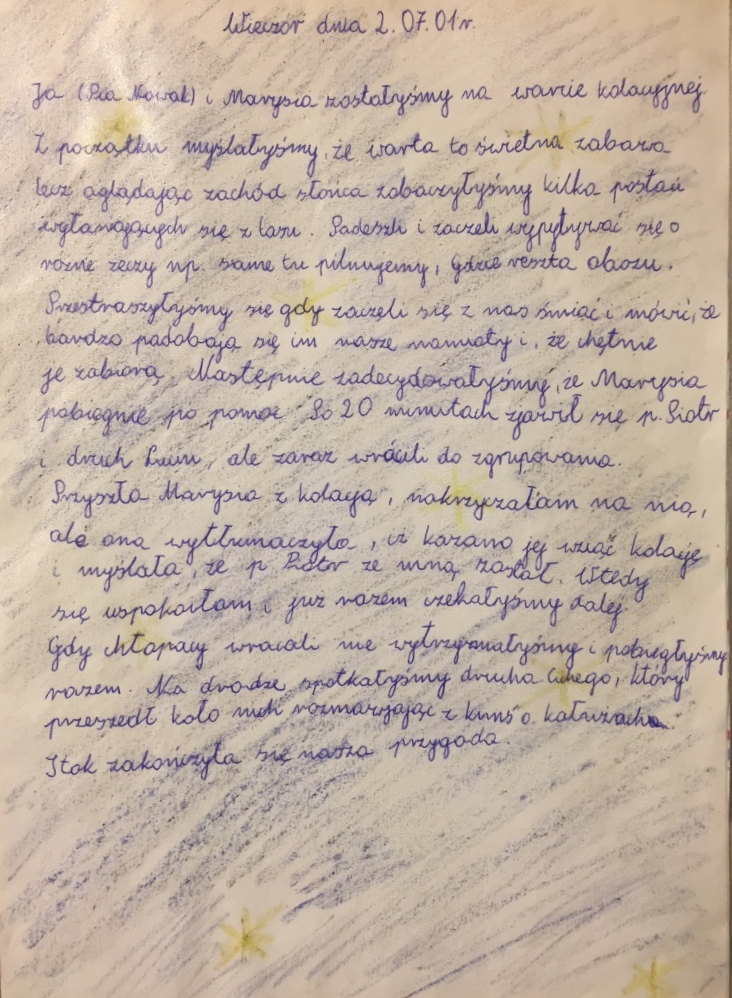 Wieczór dnia 2.07.01r.
Ja (Pia Nowak) i Marysia zostałyśmy na warcie kolacyjnej
Z początku myślałyśmy, że warta to świetna zabawa
lecz oglądając zachód słońca zobaczyłyśmy kilka postaci
wyłaniających się z lasu. Podeszli i zaczęli wypytywać się o
różne rzeczy np. same tu pilnujemy, gdzie reszta obozu.
Przestraszyłyśmy się gdy zaczęli się z nas śmiać i mówić, że
bardzo podobają się im nasze namioty i, że chętnie
je zabiorą. Następnie zadecydowałyśmy, że Marysia
pobiegnie po pomoc. Po 20 minutach zjawił się p. Piotr
i druh, ale zaraz wrócili do zgrupowania.
Przyszła Marysia z kolacją, nakrzyczałam na nią,
ale ona wytłumaczyła, iż kazano jej wziąć kolację
i myślała, że p Piotr ze mną został. Wtedy
się uspokoiłam i już razem czekałyśmy dalej.
Gdy chłopacy wracali nie wytrzymałyśmy i pobiegłyśmy
razem. Na drodze spotkałyśmy druha, który
przeszedł koło nich rozmawiając z kimś o kałużach.
I tak zakończyła się nasza przygoda.